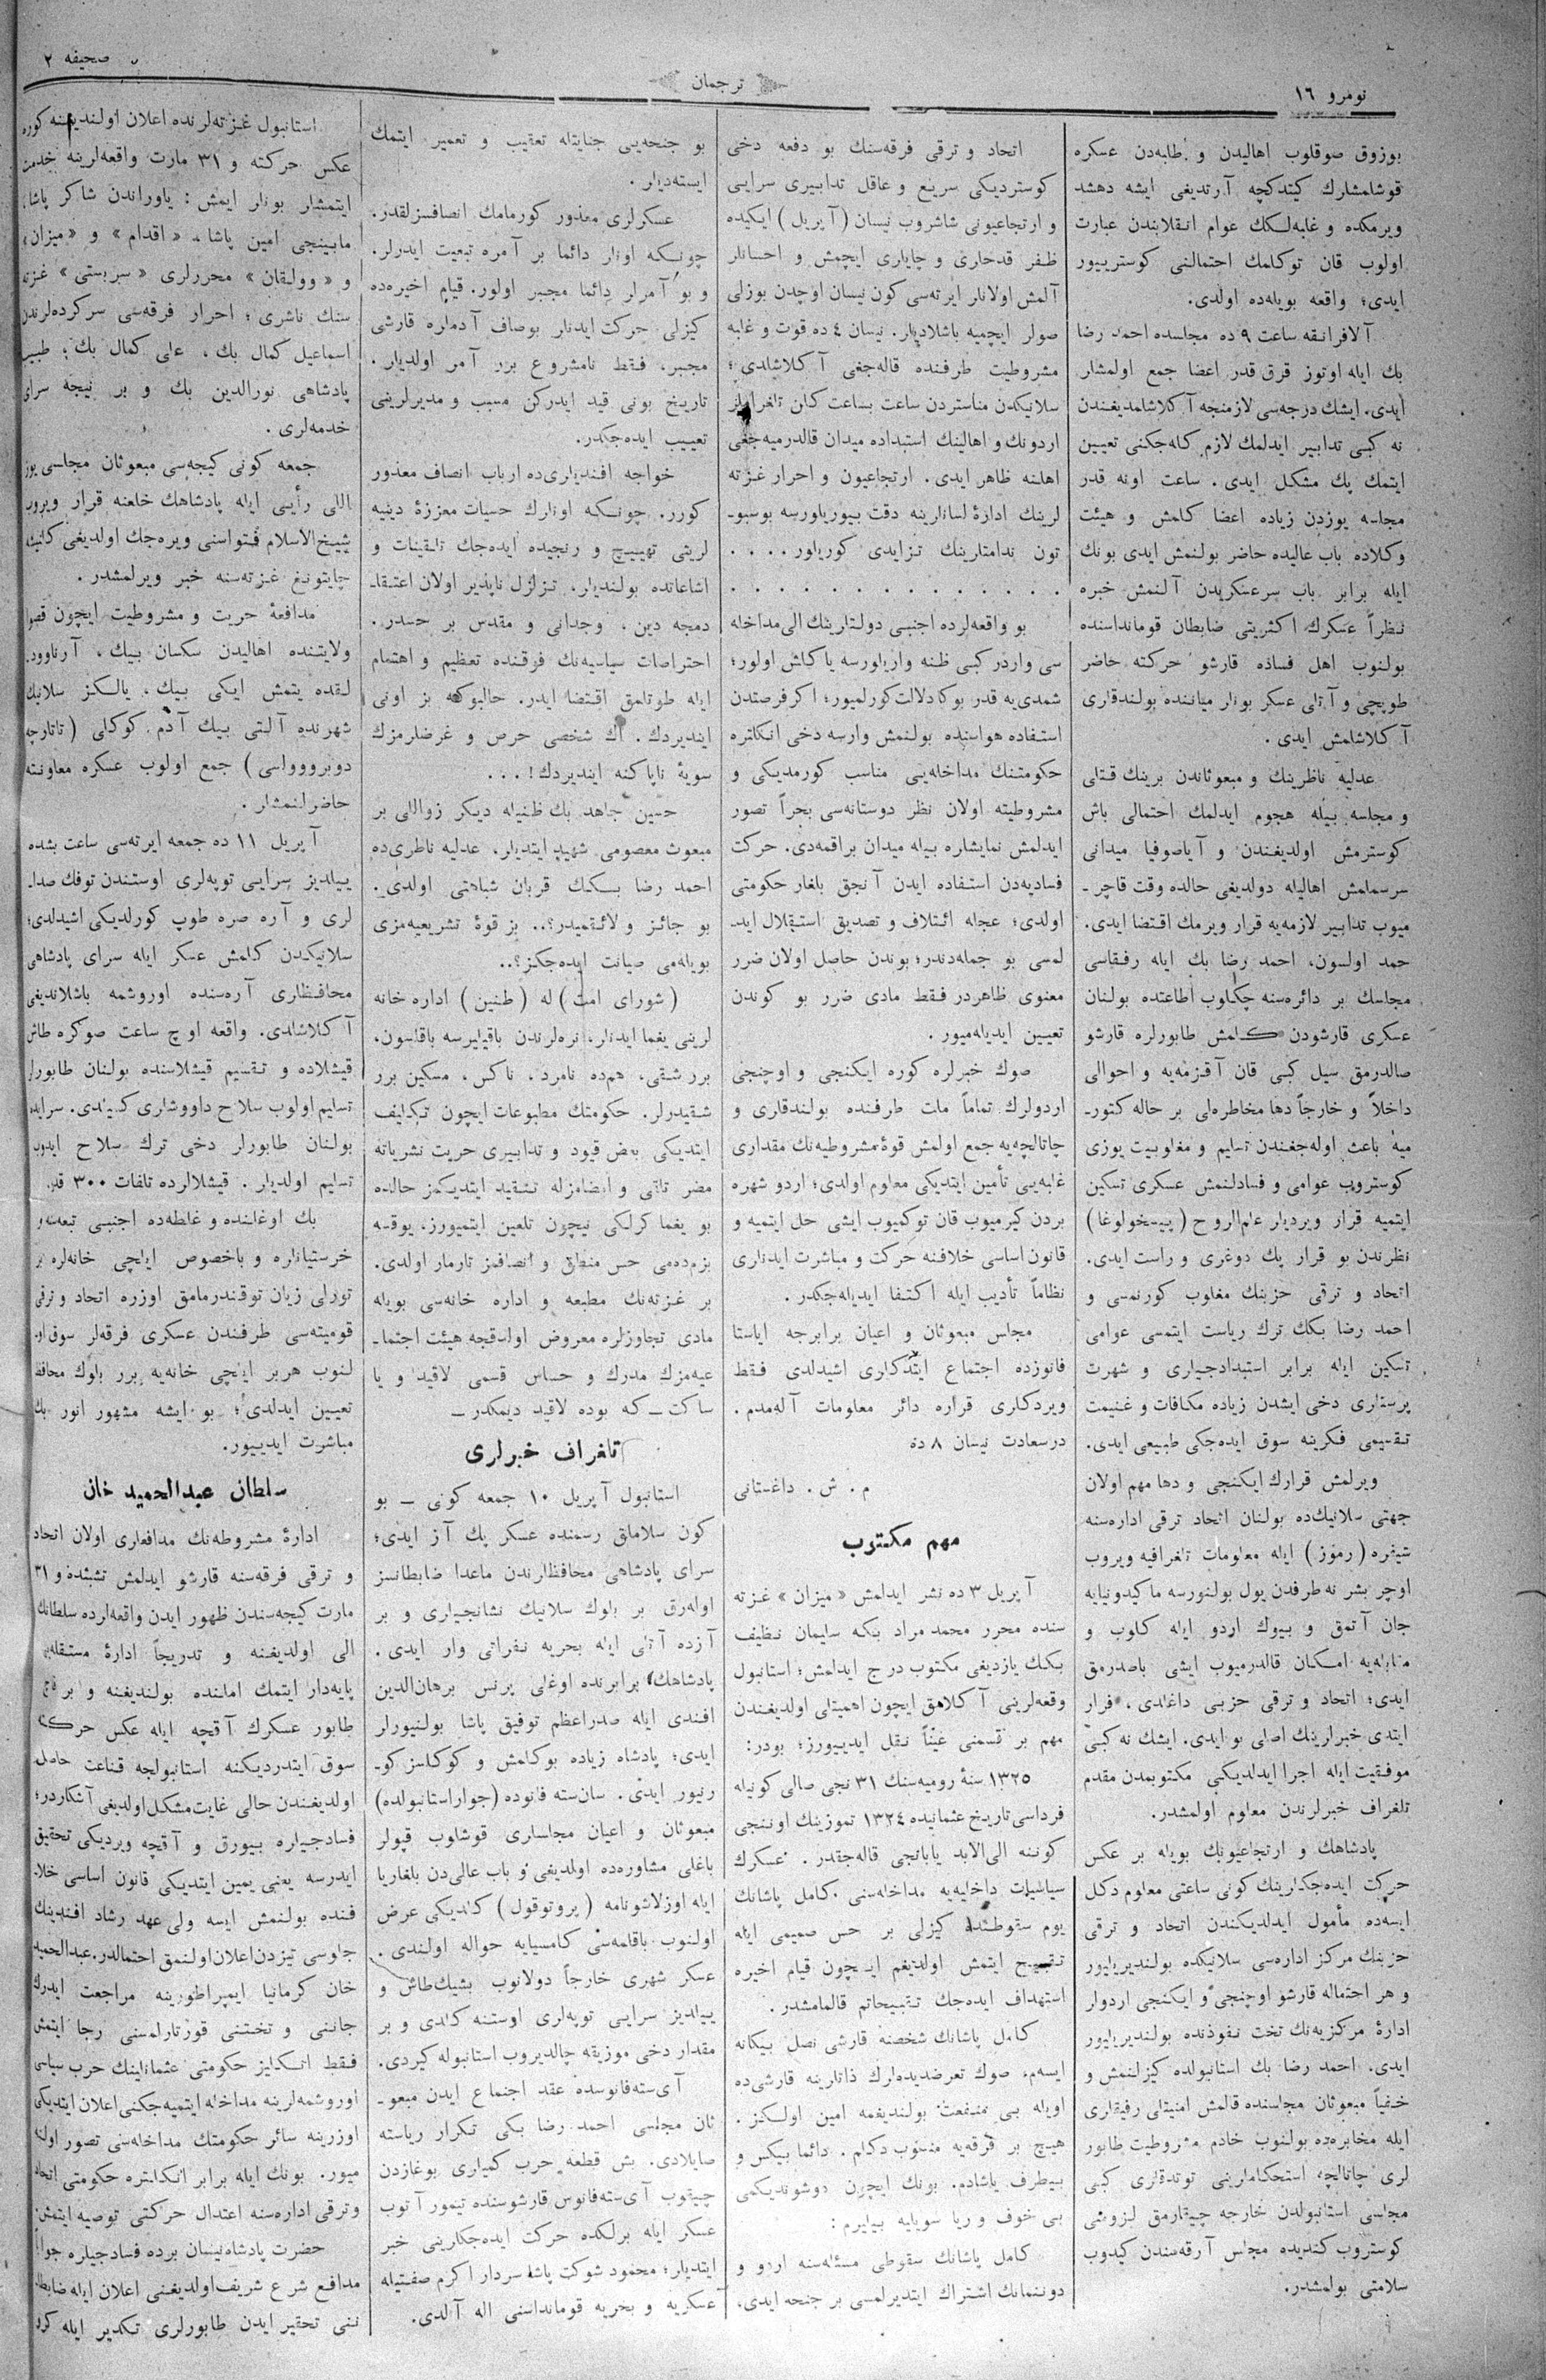 نومرو ١٦
ترجمان
صحیفه ٢
بوزوق صوقلوب اهالیدن و طلبه‌دن عسکره
قوشلمشلرك کیتدکچه آرتدیغی ایشه دهشت
ویرمکده و غلبه‌لکك عوام انقلابندن عبارت
اولوب قان توکلمك احتمالنی کوستریيور
ایدی؛ واقعه بویله‌ده اولدی.
آلافرانقه ساعت ٩ ده مجلسده احمد رضا
بك ایله اوتوز قرق قدر اعضا جمع اولمشلر
ایدی. ایشك درجه‌سی لازمنجه آکلاشلمدیغندن
نه کبی تدابیر ایدلمك لازم کله‌جکنی تعیین
ایتمك پك مشکل ایدی. ساعت اونه قدر
مجلسه یوزدن زیاده اعضا کلمش و هیئت
وکلاده باب عالیده حاضر بولنمش ایدی بونك
ایله برابر باب سرعسکریدن آلنمش خبره
نظراً عسکرك اکثریتی ضابطان قومانداسنده
بولنوب اهل فساده قارشو حرکته حاضر
طوپچی و آتلی عسکر بونلر میاننده بولندقلری
آکلاشلمش ایدی.
عدلیه ناظرینك و مبعوثاندن برینك قتلی
و مجلسه بیله هجوم ایدلمك احتمالی باش
کوسترمش اولدیغندن و آیاصوفیا میدانی
سرسملمش اهالیله دولدیغی حالده وقت قاچر ـ
میوب تدابیر لازمه‌یه قرار ویرمك اقتضا ایدی.
حمد اولسون، احمد رضا بك ایله رفقاسی
مجلسك بر دائره‌سنه چکلوب اطاعتده بولنان
عسکری قارشودن کلمش طابورلره قارشو
صالدرمق سیل کبی قان آقزمه‌یه و احوالی
داخلاً و خارجاً دها مخاطره‌لی بر حاله کتورـ
میه باعث اوله‌جغندن تسلیم و مغلوبیت یوزی
کوستروب عوامی و فسادلنمش عسکری تسکین
ایتمیه قرار ویردیلر علم‌الروح (پسیخولوغیا)
نظرندن بو قرار پك دوغری و راست ایدی.
اتحاد و ترقی حزبنك مغلوب کورنمسی و
احمد رضا بکك ترك ریاست ایتمسی عوامی
تسکین ایله برابر استبدادجیلری و شهرت
پرستلری دخی ایشدن زیاده مکافات و غنیمت
تقسیمی فکرینه سوق ایده‌جکی طبیعی ایدی.
ویرلمش قرارك ایکنجی و دها مهم اولان
جهتی سلانیك‌ده بولنان اتحاد ترقی اداره‌سنه
شیفره (رموز) ایله معلومات تلغرافیه ویروب
اوچر بشر نه طرفدن یول بولنورسه ماکیدونیایه
جان آتمق و بیوك اردو ایله کلوب و
مقابله‌یه امکان قالدرمیوب ایشی باصدرمق
ایدی؛ اتحاد و ترقی حزبی داغلدی، فرار
ایتدی خبرلرینك اصلی بو ایدی. ایشك نه کبی
موفقیت ایله اجرا ایدلدیکی مکتوبمدن مقدم
تلغراف خبرلرندن معلوم اولمشدر.
پادشاهك و ارتجاعیونك بویله بر عکس
حرکت ایده‌جکلرینك کونی ساعتی معلوم دکل
ایسه‌ده مأمول ایدلدیکندن اتحاد و ترقی
حزبنك مرکز اداره‌سی سلانیکده بولندیریلیور
و هر احتماله قارشو اوچنجی و ایکنجی اردولر
ادارهٔ مرکزیه‌نك تحت نفوذنده بولندیریلیور
ایدی. احمد رضا بك استانبولده کیزلنمش و
خفیاً مبعوثان مجلسنده قالمش امنیتلی رفیقلری
ایله مخابره‌ده بولنوب خادم مشروطیت طابور
لری چاتالجه استحکاملرینی توتدقلری کبی
مجلسی استانبولدن خارجه چیقارمق لزومنی
کوستروب کندیده مجلس آرقه‌سندن کیدوب
سلامتی بولمشدر.
اتحاد و ترقی فرقه‌سنك بو دفعه دخی
کوستردیکی سریع و عاقل تدابیری سرایی
و ارتجاعیونی شاشروب نیسان (آپریل) ایکیده
ظفر قدحلری و چایلری ایچمش و احسانلر
آلمش اولانلر ایرته‌سی کون نیسان اوچدن بوزلی
صولر ایچمیه باشلادیلر. نیسان ٤ ده قوت و غلبه
مشروطیت طرفنده قاله‌جغی آکلاشلدی؛
سلانیکدن مناستردن ساعت بساعت کلن تلغرافلر
اردونك و اهالینك استبداده میدان قالدرمیه‌جغی
اهلنه ظاهر ایدی. ارتجاعیون و احرار غزته
لرینك ادارهٔ لسانلرینه دقت بیوریلورسه بوسبوـ
تون ندامتلرینك تزایدی کوریلور ....
. . . . . . . . . . . .
بو واقعه‌لرده اجنبی دولتلرینك الی مداخله
سی واردر کبی ظنه واریلورسه یاکلش اولور؛
شمدی‌یه قدر بوکا دلالت کورلمیور؛ اکر فرصتدن
استفاده هواسنده بولنمش وارسه دخی انکلتره
حکومتنك مداخله‌یی مناسب کورمدیکی و
مشروطیته اولان نظر دوستانه‌سی بحراً تصور
ایدلمش نمایشلره بیله میدان براقمه‌دی. حرکت
فسادیه‌دن استفاده ایدن آنجق بلغار حکومتی
اولدی؛ عجله ائتلاف و تصدیق استقلال ایدـ
لمسی بو جمله‌دندر؛ بوندن حاصل اولان ضرر
معنوی ظاهردر فقط مادی ضرر بو کوندن
تعیین ایدیله‌میور.
صوك خبرلره کوره ایکنجی و اوچنجی
اردولرك تماماً ملت طرفنده بولندقلری و
چاتالجه‌یه جمع اولمش قوهٔ مشروطیه‌نك مقداری
غلبه‌یی تأمین ایتدیکی معلوم اولدی؛ اردو شهره
بردن کیرمیوب قان توکمیوب ایشی حل ایتمیه و
قانون اساسی خلافنه حرکت و مباشرت ایدنلری
نظاماً تأدیب ایله اکتفا ایدیله‌جکدر.
مجلس مبعوثان و اعیان برابرجه ایاستا
فانوزده اجتماع ایتدکلری اشیدلدی فقط
ویردکلری قراره دائر معلومات آله‌مدم.
درسعادت نیسان ٨ ده
م. ش. داغستانی
مهم مکتوب
آپریل ٣ ده نشر ایدلمش «میزان» غزته
سنده محرر محمد مراد بکه سلیمان نظیف
بکك یازدیغی مکتوب درج ایدلمش؛ استانبول
وقعه‌لرینی آکلامق ایچون اهمیتلی اولدیغندن
مهم بر قسمنی عیناً نقل ایدیيورز؛ بودر:
١٣٢٥ سنهٔ رومیه‌سنك ٣١ نجی صالی کونیله
فرداسی تاریخ عثمانیده ١٣٢٤ تموزینك اوننجی
کوننه الی‌الابد یابانجی قاله‌جقدر. عسکرك
سیاسیات داخلیه‌یه مداخله‌سنی کامل پاشانك
یوم سقوطنده کیزلی بر حس صمیمی ایله
تقبیح ایتمش اولدیغم ایچون قیام اخیره
استهداف ایده‌جك تقبیحاتم قالمامشدر.
کامل پاشانك شخصنه قارشی نصل بیکانه
ایسه‌م، صوك تعرضدیده‌لرك ذاتلرینه قارشی‌ده
اویله بی منفعت بولندیغمه امین اولکز.
هیچ بر فرقه‌یه منسوب دکلم. دائما بیکس و
بیطرف یاشادم. بونك ایچون دوشوندیکمی
بی خوف و ریا سویلیه بیلیرم:
کامل پاشانك سقوطی مسئله‌سنه اردو و
دوننمانك اشتراك ایتدیرلمسی بر جنحه ایدی،
بو جنحه‌یی جنایتله تعقیب و تعمیر ایتمك
ایسته‌دیلر.
عسکرلری معذور کورمامك انصافسزلقدر.
چونکه اونلر دائما بر آمره تبعیت ایدرلر.
و بو آمرلر دائما مجبر اولور. قیام اخیره‌ده
کیزلی حرکت ایدنلر بوصاف آدملره قارشی
مجبر، فقط نامشروع برر آمر اولدیلر.
تاریخ بونی قید ایدرکن مسبب و مدیرلرینی
تعییب ایده‌جکدر.
خواجه افندیلری‌ده ارباب انصاف معذور
کورر. چونکه اونلرك حسیات معززهٔ دینیه
لرینی تهییج و رنجیده ایده‌جك تلقینات و
اشاعاتده بولندیلر. تزلزل ناپذیر اولان اعتقاـ
دمجه دین، وجدانی و مقدس بر حسدر.
احتراصات سیاسیه‌نك فوقنده تعظیم و اهتمام
ایله طوتلمق اقتضا ایدر. حالبوکه بز اونی
ایندیردك. اك شخصی حرص و غرضلرمزك
سویهٔ ناپاکنه ایندیردك!...
حسین جاهد بك ظنیله دیکر زواللی بر
مبعوث معصومی شهید ایتدیلر. عدلیه ناظری‌ده
احمد رضا بکك قربان شباهتی اولدی.
بو جائز و لائقمیدر؟.. بز قوهٔ تشریعیه‌مزی
بویله‌می صیانت ایده‌جکز؟..
(شورای امت) له (طنین) اداره خانه
لرینی یغما ایدنلر، نره‌لرندن باقیلیرسه باقلسون،
برر شقی، هم‌ده نامرد، ناکس، مسکین برر
شقیدرلر. حکومتك مطبوعات ایچون تکلیف
ایتدیکی بعض قیود و تدابیری حریت نشریاته
مضر تلقی و امضامزله تنقید ایتدیکمز حالده
بو یغما کرلکی نیچون تلعین ایتمیورز، یوقسه
بزم‌ده‌می حس منطق و انصافمز تارمار اولدی.
بر غزته‌نك مطبعه و اداره خانه‌سی بویله
مادی تجاوزلره معروض اولدقجه هیئت اجتماـ
عیه‌مزك مدرك و حساس قسمی لاقید و یا
ساکت ـ که بوده لاقید دیمکدر ـ
تلغراف خبرلری
استانبول آپریل ١٠ جمعه کونی ـ بو
کون سلاملق رسمنده عسکر پك آز ایدی؛
سرای پادشاهی محافظلرندن ماعدا ضابطانسز
اوله‌رق بر بلوك سلانیك نشانجیلری و بر
آزده آتلی ایله بحریه نفراتی وار ایدی.
پادشاهك برابرنده اوغلی پرنس برهان‌الدین
افندی ایله صدراعظم توفیق پاشا بولنیورلر
ایدی؛ پادشاه زیاده بوکلمش و کوکلسز کوـ
رنیور ایدی. سان‌سته فانوده (جوار استانبولده)
مبعوثان و اعیان مجلسلری قوشلوب قپولر
باغلی مشاوره‌ده اولدیغی و باب عالی‌دن بلغاریا
ایله اوزلاشونامه (پروتوقول) کلدیکی عرض
اولنوب باقلمه‌سی کامسیایه حواله اولندی.
عسکر شهری خارجاً دولانوب بشیك‌طاش و
ییلدیز سرایی توپه‌لری اوستنه کلدی و بر
مقدار دخی موزیقه چالدیروب استانبوله کیردی.
آی‌سته‌فانوسده عقد اجتماع ایدن مبعوـ
ثان مجلسی احمد رضا بکی تکرار ریاسته
صایلادی. بش قطعه حرب کمیلری بوغازدن
چیقوب آی‌سته‌فانوس قارشوسنده تیمور آتوب
عسکر ایله برلکده حرکت ایده‌جکلرینی خبر
ایتدیلر؛ محمود شوکت پاشا سردار اکرم صفتیله
عسکریه و بحریه قومانداسنی اله آلدی.
استانبول غزته‌لرنده اعلان اولندیغنه کوره
عکس حرکته و ٣١ مارت واقعه‌لرینه خدمت
ایتمشلر بونلر ایمش: یاوراندن شاکر پاشا،
مابینجی امین پاشا، «اقدام» و «میزان»
و «وولقان» محررلری «سربستی» غزته
سنك ناشری؛ احرار فرقه‌سی سرکرده‌لرندن
اسماعیل کمال بك، علی کمال بك؛ طبیب
پادشاهی نورالدین بك و بر نیجه سرای
خدمه‌لری.
جمعه کونی کیجه‌سی مبعوثان مجلسی یوز
اللی رأیی ایله پادشاهك خلعنه قرار ویروب
شیخ‌الاسلام فتواسنی ویره‌جك اولدیغی
غزته‌سنه خبر ویرلمشدر.
مدافعهٔ حریت و مشروطیت ایچون قصوا
ولایتنده اهالیدن سکسان بیك، آرناوودـ
لقده یتمش ایکی بیك، یالکز سلانیك
شهرنده آلتی بیك آدم کوکللی (تاتارچه
دوبرووواسی) جمع اولوب عسکره معاونته
حاضرلنمشلر.
آپریل ١١ ده جمعه ایرته‌سی ساعت بشده
ییلدیز سرایی توپه‌لری اوستندن توفك صداـ
لری و آره صره طوپ کورلدیکی اشیدلدی؛
سلانیکدن کلمش عسکر ایله سرای پادشاهی
محافظلری آره‌سنده اوروشمه باشلاندیغی
آکلاشلدی. واقعه اوچ ساعت صوکره طاش
قیشلاده و تقسیم قیشلاسنده بولنان طابورلر
تسلیم اولوب سلاح داووشلری کسیلدی. سرایده
بولنان طابورلر دخی ترك سلاح ایدوب
تسلیم اولدیلر. قیشلالرده تلفات ٣٠٠ قدر.
بك اوغلنده و غلطه‌ده اجنبی تبعه‌سنه و
خرستیانلره و باخصوص ایلچی خانه‌لره بر
تورلی زیان توقندرمامق اوزره اتحاد و ترقی
قومیته‌سی طرفندن عسکری فرقه‌لر سوق اوـ
لنوب هربر ایلچی خانه‌یه برر بلوك محافظ
تعیین ایدلدی؛ بو ایشه مشهور انور بك
مباشرت ایدیيور.
سلطان عبدالحمید خان
ادارهٔ مشروطه‌نك مدافعلری اولان اتحاد
و ترقی فرقه‌سنه قارشو ایدلمش تشبثده و ٣١
مارت کیجه‌سندن ظهور ایدن واقعه‌لرده سلطانك
الی اولدیغنه و تدریجاً ادارهٔ مستقله‌یی
پایه‌دار ایتمك املنده بولندیغنه و بر قاچ
طابور عسکرك آقچه ایله عکس حرکته
سوق ایتدردیکنه استانبولجه قناعت حاصل
اولدیغندن حالی غایت مشکل اولدیغی آشکاردر؛
فسادجیلره بیورق و آقچه ویردیکی تحقیق
ایدرسه یعنی یمین ایتدیکی قانون اساسی خلاـ
فنده بولنمش ایسه ولی عهد رشاد افندینك
جلوسی تیزدن اعلان اولنمق احتمالدر. عبدالحمید
خان کرمانیا ایمپراطورینه مراجعت ایدرك
جاننی و تختنی قورتارلمسنی رجا ایتمش
فقط انکلیز حکومتی عثمانلینك حرب سیاسی
اوروشمه‌لرینه مداخله ایتمیه‌جکنی اعلان ایتدیکی
اوزرینه سائر حکومتك مداخله‌سی تصور اولنه
میور. بونك ایله برابر انکلتره حکومتی اتحاد
و ترقی اداره‌سنه اعتدال حرکتی توصیه ایتمش.
حضرت پادشاه نیسان برده فسادجیلره جواباً
مدافع شرع شریف اولدیغنی اعلان ایله ضابطاـ
ننی تحقیر ایدن طابورلری تکدیر ایله کرو